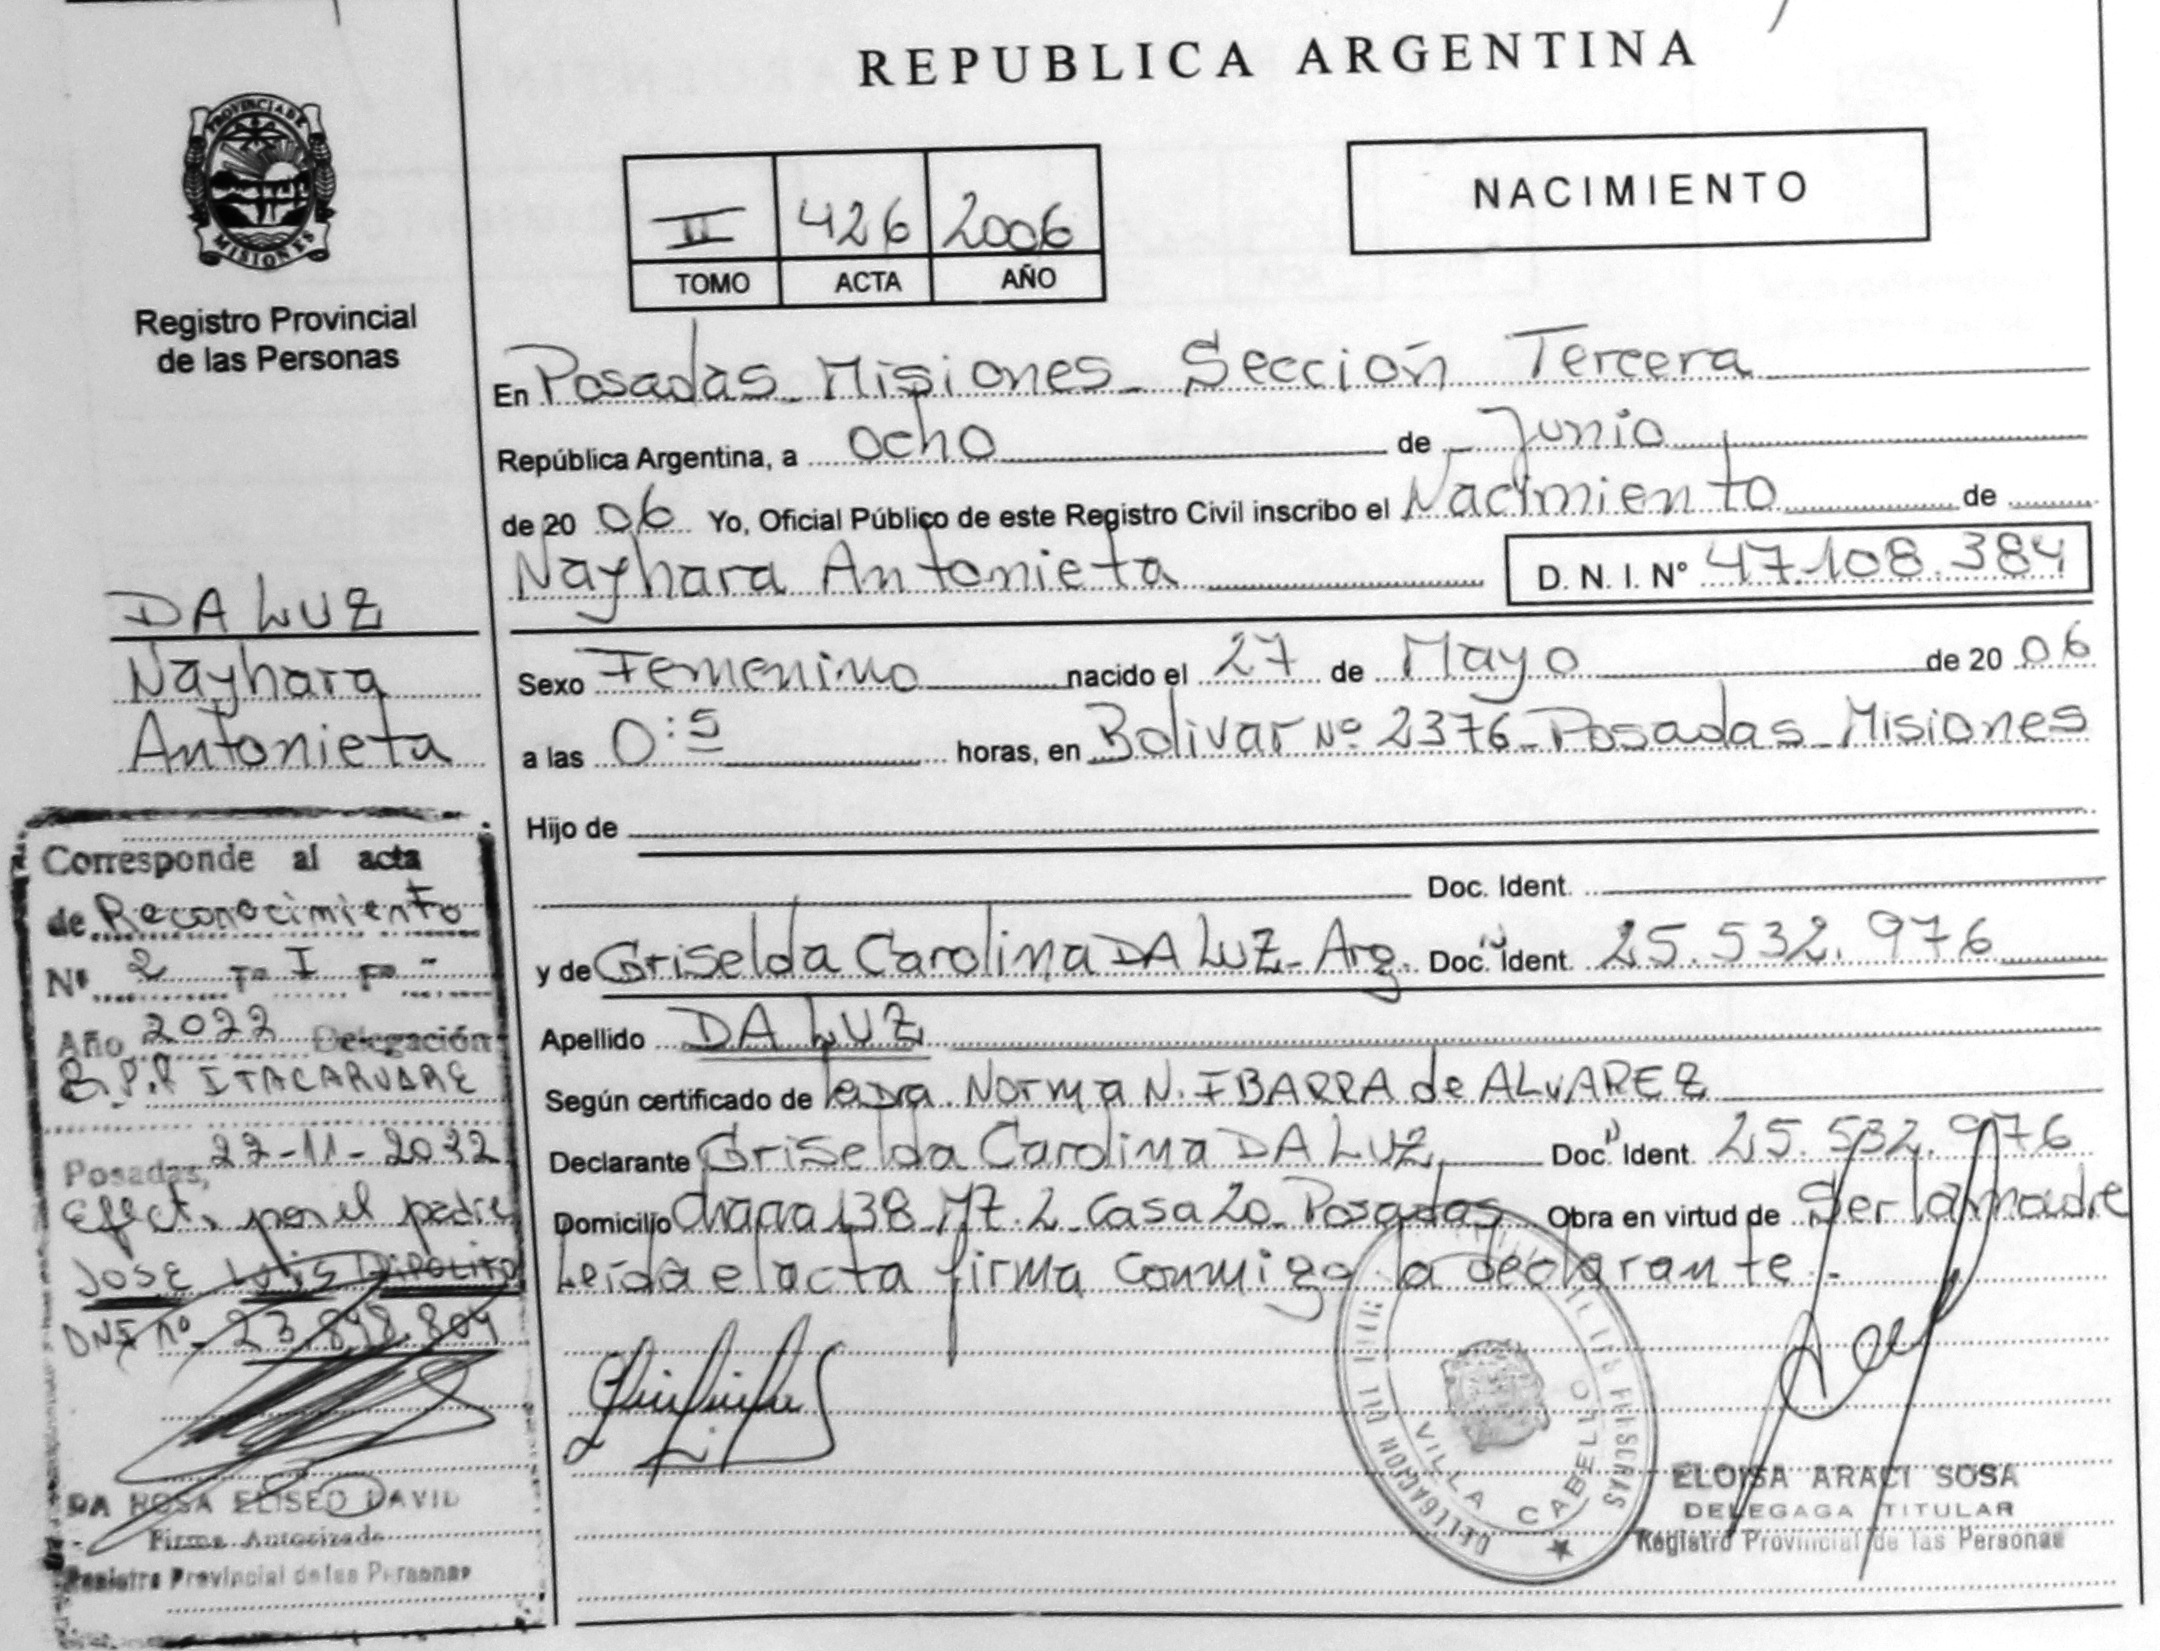 REPUBLICA ARGENTINA
PROVINCIA DE
MISIONES
Registro Provincial
de las Personas
II 426 2006
TOMO ACTA AÑO
NACIMIENTO
En Posadas - Misiones - Sección Tercera
República Argentina, a ocho de Junio
de 20 06 Yo, Oficial Público de este Registro Civil inscribo el Nacimiento de
Nayhara Antonieta D. N. I. Nº 47.108.384
DA LUZ
Nayhara
Antonieta
Sexo Femenino nacido el 27 de Mayo de 20 06
a las 0:5 horas, en Bolivar Nº 2376 - Posadas - Misiones
Hijo de
Doc. Ident.
y de Griselda Carolina DA LUZ - Arg. Doc. Ident. 25.532.976
Apellido DA LUZ
Según certificado de la Dra. Norma N. IBARRA de ALVAREZ
Declarante Griselda Carolina DA LUZ Doc. Ident. 25.532.976
Domicilio Chacra 138 Mz. 2 Casa 20 - Posadas Obra en virtud de Ser la madre
Leída el acta firma conmigo la declarante.-
Corresponde al acta
de Reconocimiento
Nº 2 Tº I Fº -
Año 2022 Delegación
ITACARUARE
Posadas, 22-11-2022
Efect. por el padre
JOSE LUIS DIPOLITO
DNI nº 23.898.804
DA ROSA ELISEO DAVID
Firma Autorizada
Registro Provincial de las Personas
VILLA CABELLO
ELOISA ARACI SOSA
DELEGADA TITULAR
Registro Provincial de las Personas